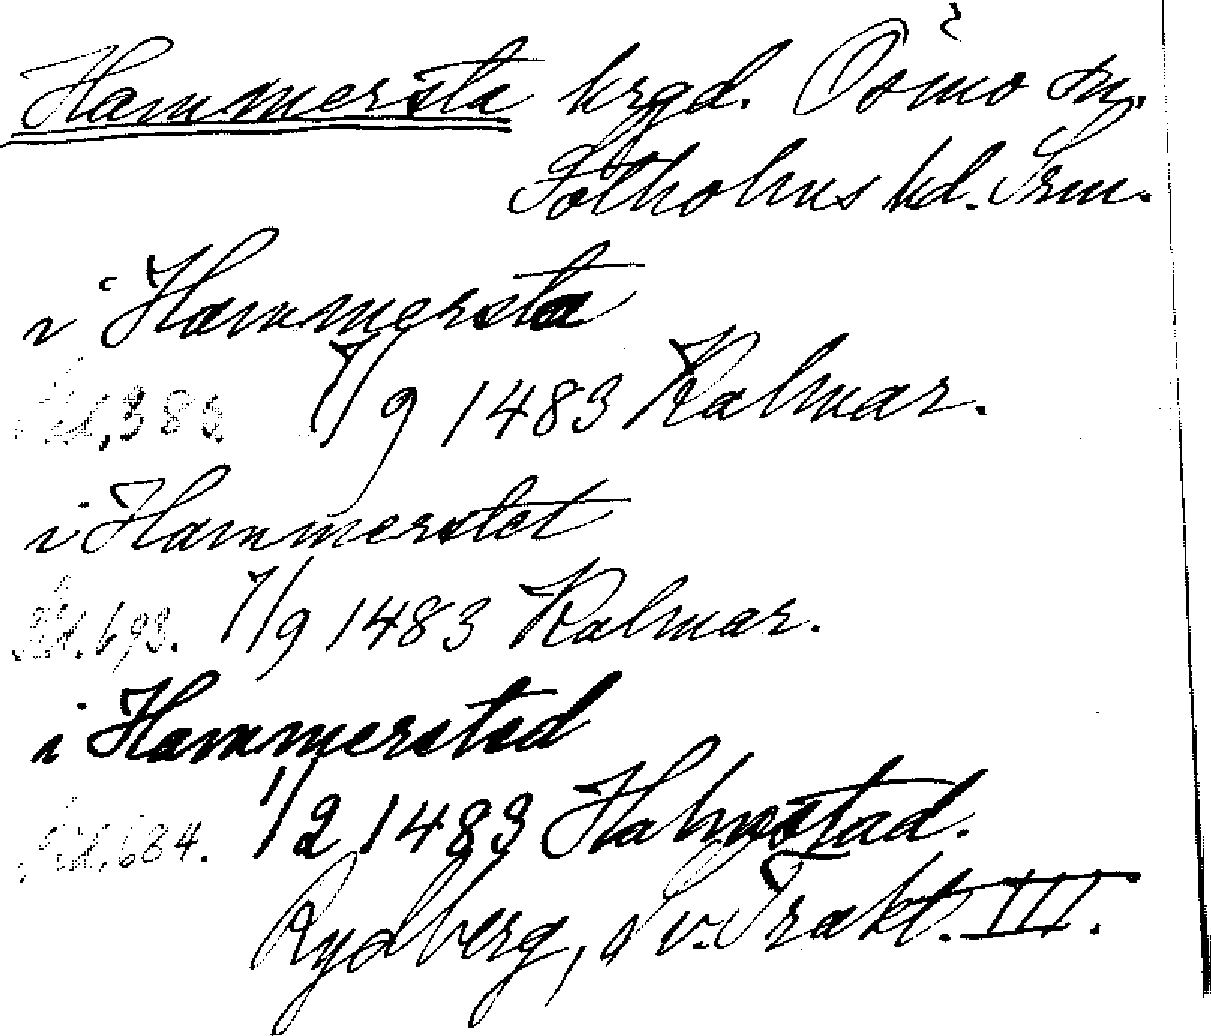 Hammersta krgd. Ösmo sn.
Sotholms hd. Srm.
i Hammersta
7/9 1483 Kalmar.
i Hammerstet
Sid. 693. 7/9 1483 Kalmar.
i Hammerstad
Sid. 684. 1/2 1483 Halmstad.
Rydberg, Sv. Trakt. III.